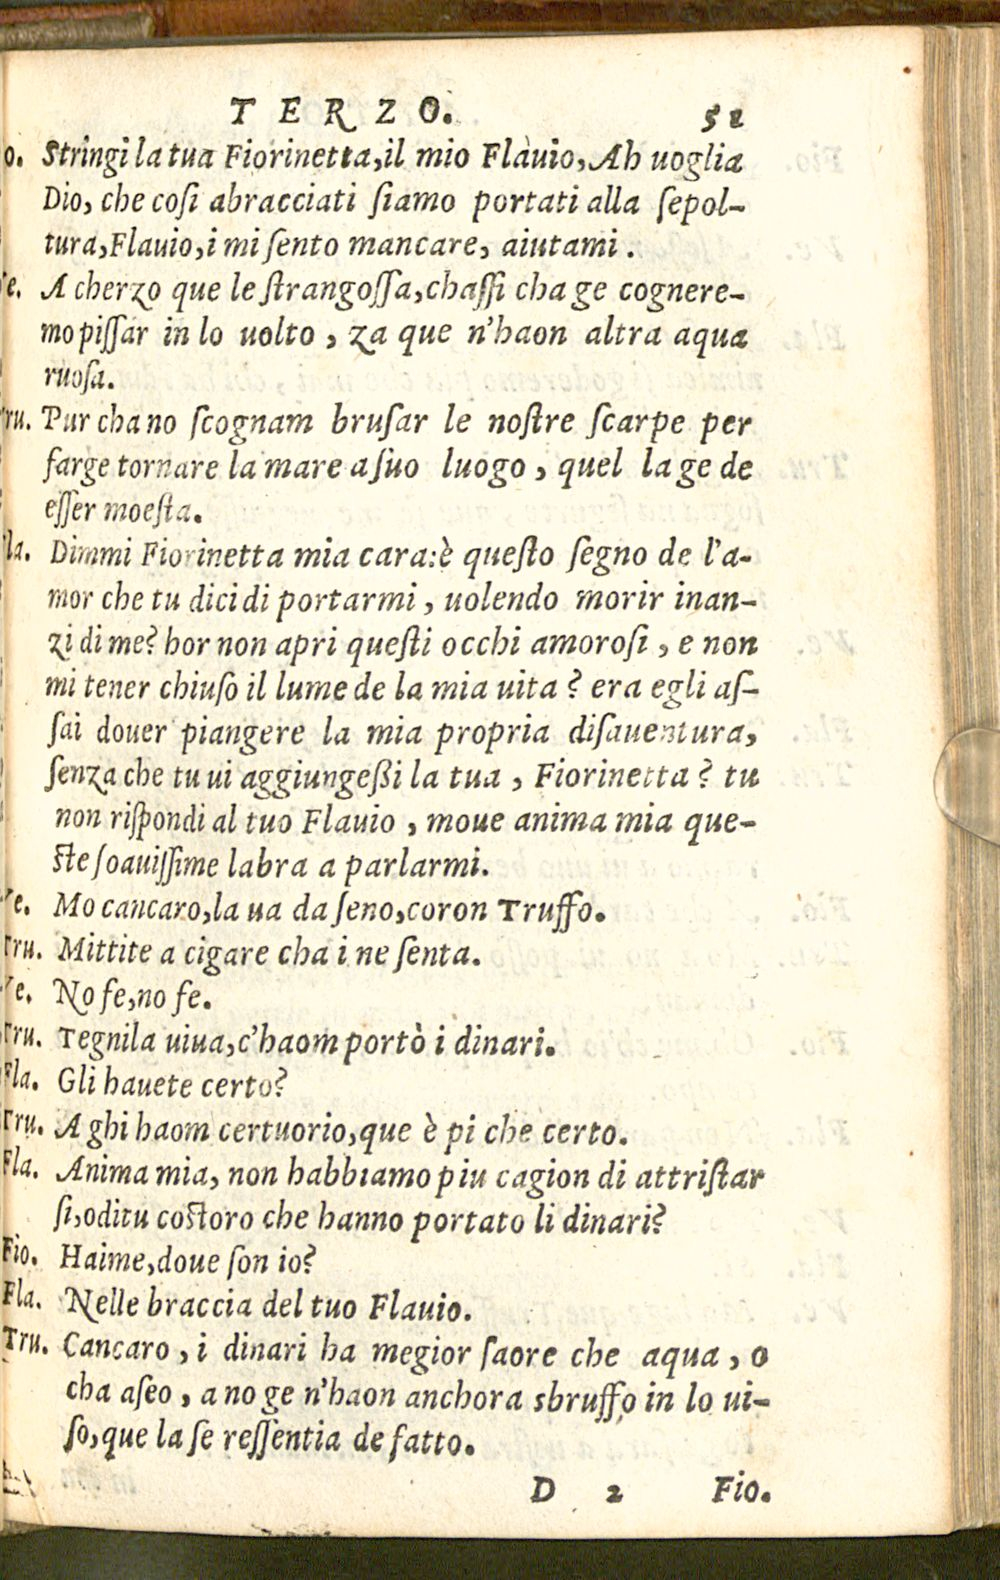 TERZO. 52
o. Stringi la tua Fiorinetta, il mio Flauio, Ah uoglia
Dio, che cosi abracciati siamo portati alla sepol-
tura, Flauio, i mi sento mancare, aiutami.
e. A cherzo que le strangossa, chassi cha ge cognere-
mo pissar in lo uolto, za que n'haon altra aqua
ruosa.
ru. Pur cha no scognam brusar le nostre scarpe per
farge tornare la mare a suo luogo, quel la ge de
esser moesta.
la. Dimmi Fiorinetta mia cara: è questo segno de l'a-
mor che tu dici di portarmi, uolendo morir inan-
zi di me? hor non apri questi occhi amorosi, e non
mi tener chiuso il lume de la mia uita? era egli as-
sai douer piangere la mia propria disauentura,
senza che tu ui aggiungeßi la tua, Fiorinetta? tu
non rispondi al tuo Flauio, moue anima mia que-
ste soauissime labra a parlarmi.
Ve. Mo cancaro, la ua da seno, coron Truffo.
Tru. Mittite a cigare cha i ne senta.
Ve. No fe, no fe.
Tru. Tegnila uiua, c'haom portò i dinari.
Fla. Gli hauete certo?
Tru. A ghi haom certuorio, que è pi che certo.
Fla. Anima mia, non habbiamo piu cagion di attristar
si, oditu costoro che hanno portato li dinari?
Fio. Haime, doue son io?
Fla. Nelle braccia del tuo Flauio.
Tru. Cancaro, i dinari ha megior saore che aqua, o
cha aseo, a no ge n'haon anchora sbruffo in lo ui-
so, que la se ressentia de fatto.
D 2 Fio.